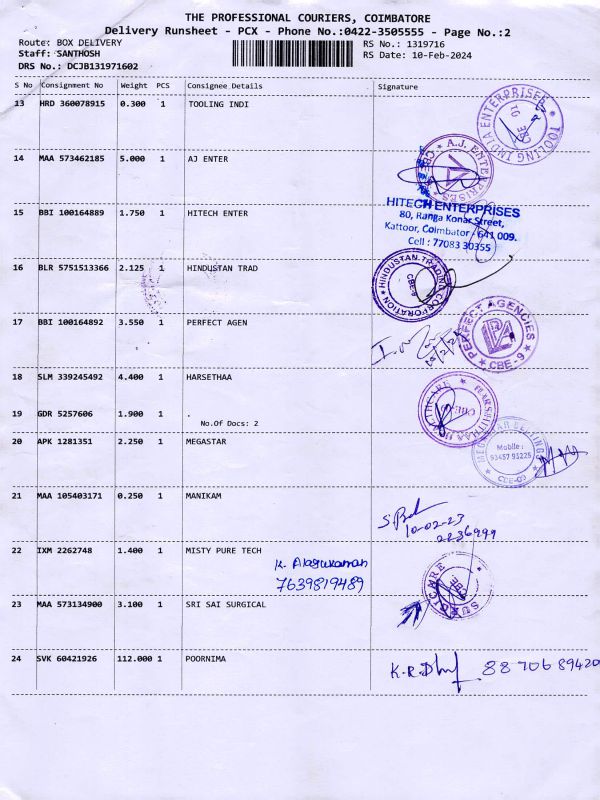 THE PROFESSIONAL COURIERS, COIMBATORE
Delivery Runsheet - PCX - Phone No.:0422-3505555 - Page No.:2
Route: BOX DELIVERY
RS No.: 1319716
Staff: SANTHOSH
RS Date: 10-Feb-2024
DRS No.: DCJB131971602
S No Consignment No Weight PCS Consignee Details Signature
13 HRD 360078915 0.300 1 TOOLING INDI
TOOLING INDIA ENTERPRISES
14 MAA 573462185 5.000 1 AJ ENTER
A.J. ENTERPRISES
15 BBI 100164889 1.750 1 HITECH ENTER
HITECH ENTERPRISES
80, Ranga Konar Street,
Kattoor, Coimbatore - 641 009.
Cell : 77083 30355
16 BLR 5751513366 2.125 1 HINDUSTAN TRAD
HINDUSTAN TRADING CORPORATION
CBE-9
17 BBI 100164892 3.550 1 PERFECT AGEN
PERFECT AGENCIES
CBE-9
18 SLM 339245492 4.400 1 HARSETHAA
HEALTHCARE
CBE
19 GDR 5257606 1.900 1 .
No.Of Docs: 2
20 APK 1281351 2.250 1 MEGASTAR
Mobile :
93457 95225
CBE-09
21 MAA 105403171 0.250 1 MANIKAM
10-02-23
2236999
22 IXM 2262748 1.400 1 MISTY PURE TECH
K. Alagukannan
7639819489
23 MAA 573134900 3.100 1 SRI SAI SURGICAL
CBE
24 SVK 60421926 112.000 1 POORNIMA
K.R. 8870689420